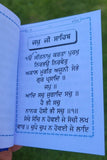 ਜਪੁ ਜੀ ਸਾਹਿਬ
ੴ ਸਤਿਨਾਮੁ ਕਰਤਾ ਪੁਰਖੁ
ਨਿਰਭਉ ਨਿਰਵੈਰੁ
ਅਕਾਲ ਮੂਰਤਿ ਅਜੂਨੀ ਸੈਭੰ
ਗੁਰਪ੍ਰਸਾਦਿ ॥
॥ ਜਪੁ ॥
ਆਦਿ ਸਚੁ ਜੁਗਾਦਿ ਸਚੁ ॥
ਹੈ ਭੀ ਸਚੁ
ਨਾਨਕ ਹੋਸੀ ਭੀ ਸਚੁ ॥੧॥
ਸੋਚੈ ਸੋਚਿ ਨ ਹੋਵਈ ਜੇ ਸੋਚੀ ਲਖ
ਵਾਰ ॥ ਚੁਪੈ ਚੁਪ ਨ ਹੋਵਈ ਜੇ ਲਾਇ